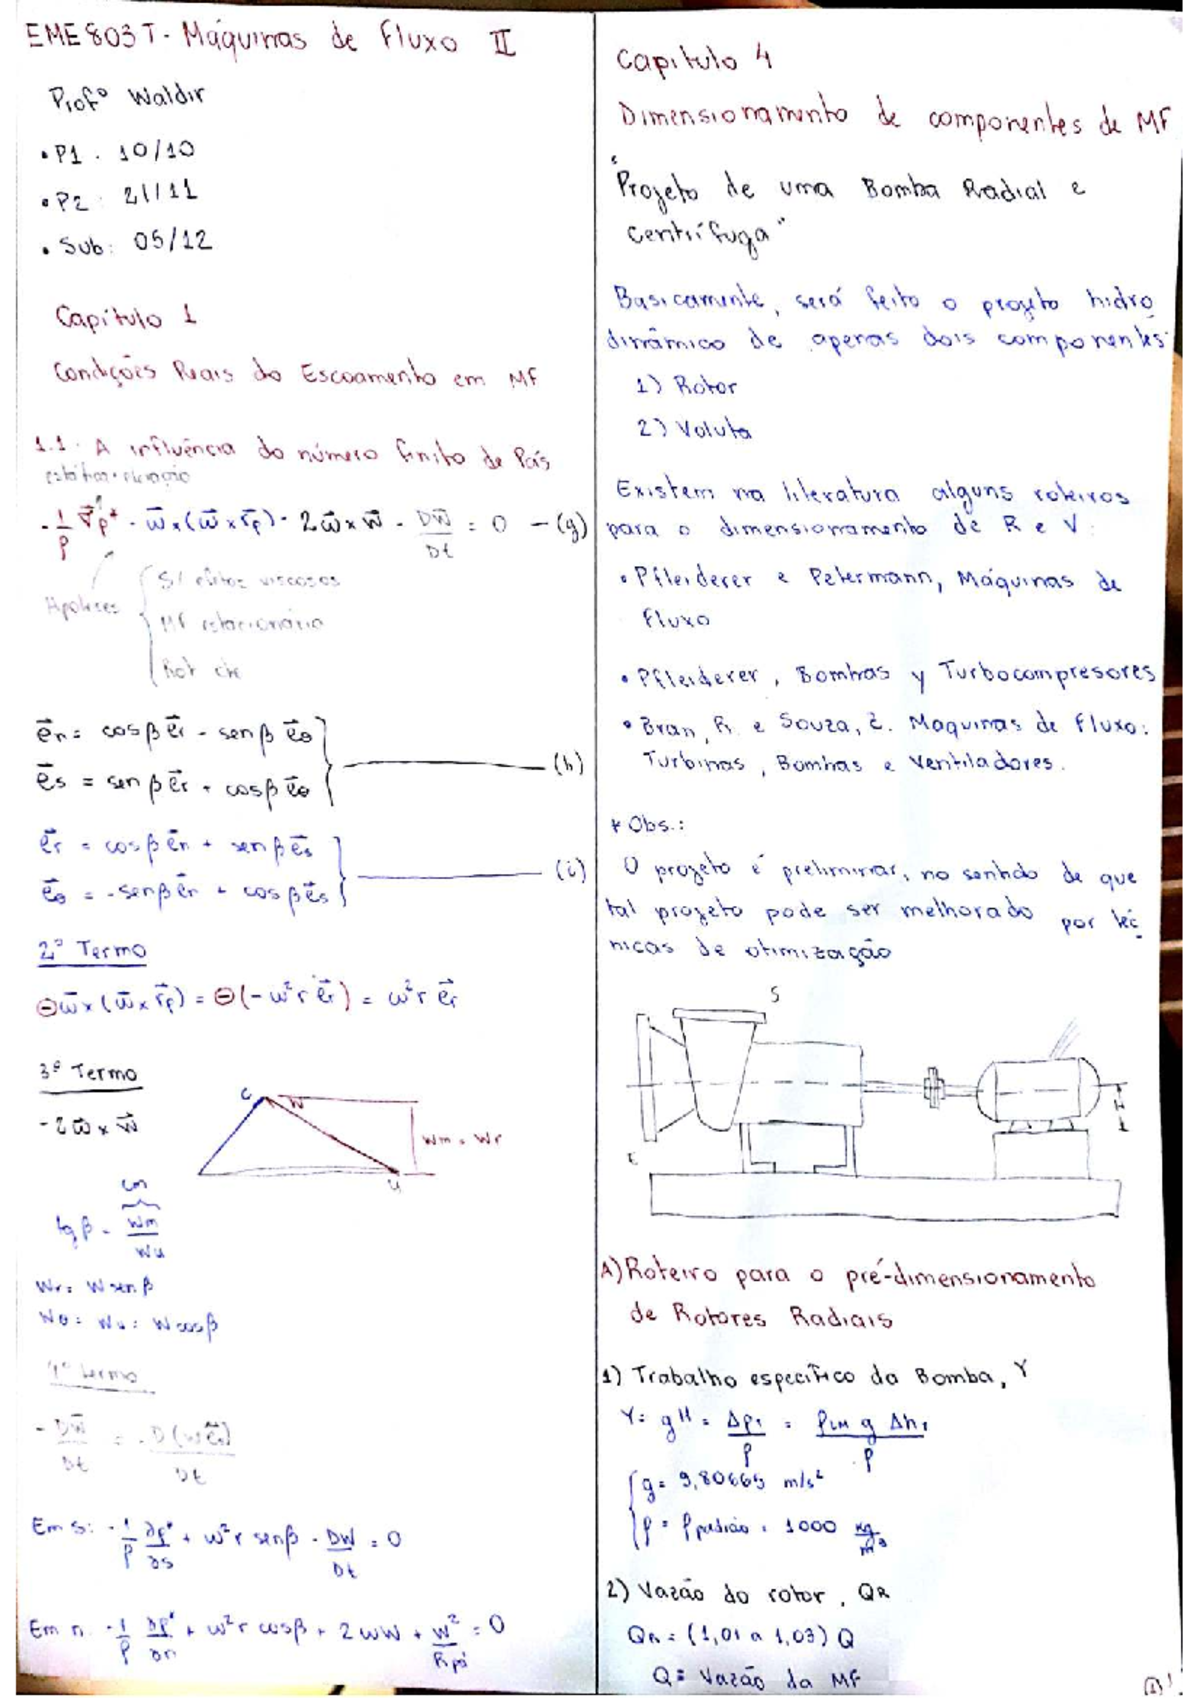 EME803T - Máquinas de Fluxo II
Profº Waldir
• P1 . 10/10
• P2 : 21/11
• Sub: 05/12
Capítulo 1
Condições Reais do Escoamento em MF
1.1 - A influência do número finito de Pás
estática + elevação
-1/ρ ∇⃗p* - ω⃗x(ω⃗xr⃗p) - 2ω⃗xw⃗ - Dw⃗/Dt = 0 — (g)
Hipóteses
S/ efeitos viscosos
MF estacionário
Rot cte
e⃗n = cosβ e⃗r - senβ e⃗θ
e⃗s = senβ e⃗r + cosβ e⃗θ
(h)
e⃗r = cosβ e⃗n + senβ e⃗s
e⃗θ = -senβ e⃗n + cosβ e⃗s
(i)
2º Termo
⊖ω⃗x(ω⃗xr⃗p) = ⊖(-ω²r e⃗r) = ω²r e⃗r
3º Termo
-2ω⃗ x w⃗
C
W
Wm = Wr
u
Cm
tgβ = Wm/Wu
Wr = W senβ
Wθ = Wu = W cosβ
4º termo
-Dw⃗/Dt = -D(w e⃗s)/Dt
Em s: -1/ρ ∂p*/∂s + ω²r senβ - DW/Dt = 0
Em n: -1/ρ ∂p*/∂n + ω²r cosβ + 2ωW + W²/Rpá = 0
Capítulo 4
Dimensionamento de componentes de MF
"Projeto de uma Bomba Radial e
Centrífuga"
Basicamente, será feito o projeto hidro
dinâmico de apenas dois componentes:
1) Rotor
2) Voluta
Existem na literatura alguns roteiros
para o dimensionamento de R e V:
• Pfleiderer e Petermann, Máquinas de
Fluxo
• Pfleiderer, Bombas y Turbocompresores
• Bran, R. e Souza, Z. Maquinas de Fluxo:
Turbinas, Bombas e Ventiladores.
* Obs.:
O projeto é preliminar, no sentido de que
tal projeto pode ser melhorado por téc
nicas de otimização
S
E
H
A) Roteiro para o pré-dimensionamento
de Rotores Radiais
1) Trabalho específico da Bomba, Y
Y = gH = Δpt/ρ = ρLM g Δht/ρ
g = 9,80665 m/s²
ρ = ρpadrão = 1000 kg/m³
2) Vazão do rotor, QR
QR = (1,01 a 1,03) Q
Q = Vazão da MF